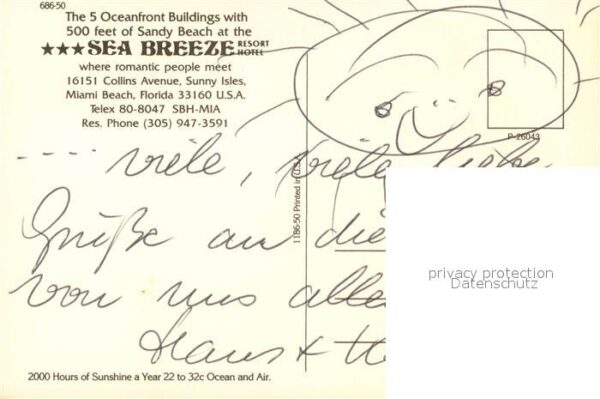 686-50
The 5 Oceanfront Buildings with
500 feet of Sandy Beach at the
★★★ SEA BREEZE RESORT HOTEL
where romantic people meet
16151 Collins Avenue, Sunny Isles,
Miami Beach, Florida 33160 U.S.A.
Telex 80-8047 SBH-MIA
Res. Phone (305) 947-3591
P-26043
1186-50 Printed in U.S.A.
.... viele, viele liebe
Grüße an die
von uns allen
Hans + H
privacy protection
Datenschutz
2000 Hours of Sunshine a Year 22 to 32c Ocean and Air.